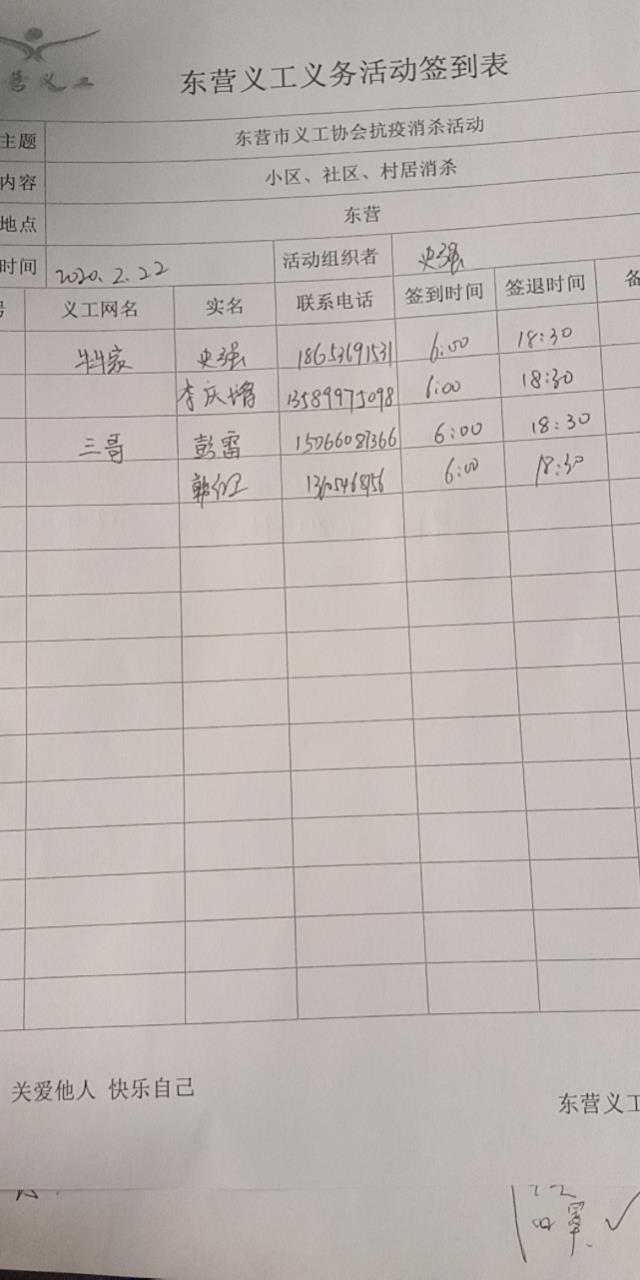 营义工
东营义工义务活动签到表
主题 东营市义工协会抗疫消杀活动
内容 小区、社区、村居消杀
地点 东营
时间 2020.2.22 活动组织者 史强
号 义工网名 实名 联系电话 签到时间 签退时间 备
史强 18653691531 6:00 18:30
李庆增 13589975098 6:00 18:30
三哥 彭雷 15066087366 6:00 18:30
6:00 18:30
关爱他人 快乐自己
东营义工
口罩 ✓